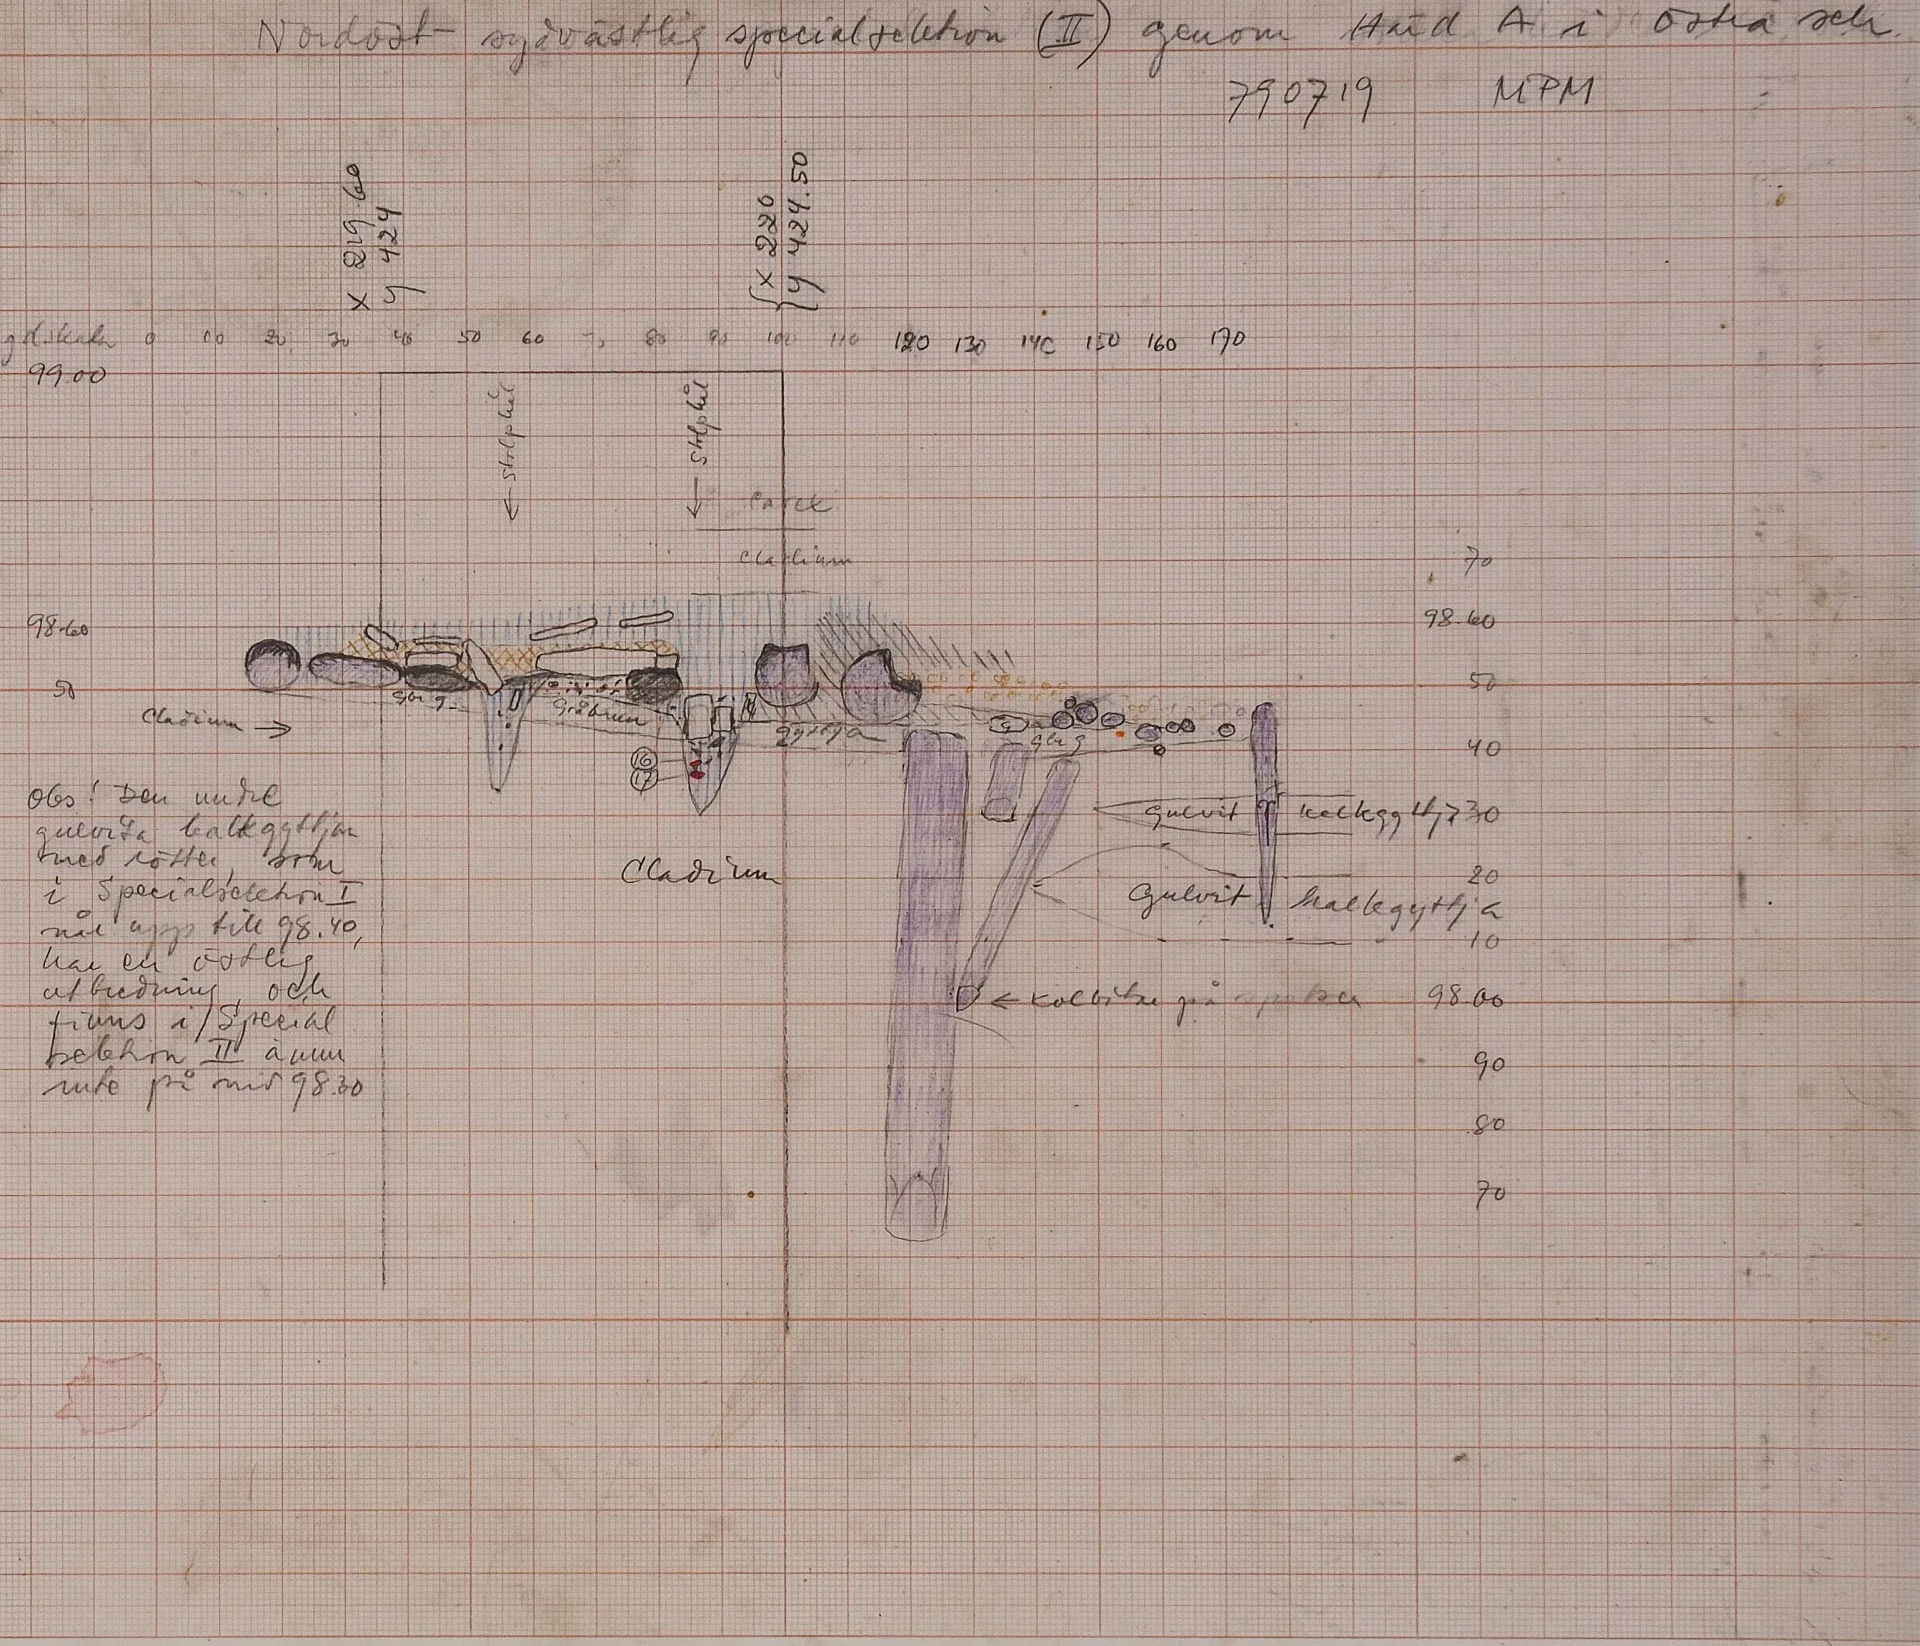 Nordöst- sydvästlig specialsektion (II) genom Härd A i östra sch.
790719 MPM
x 219.60
y 424
x 220
y 424.50
0 10 20 30 40 50 60 70 80 90 100 110 120 130 140 150 160 170
99.00
← stolphål
← stolphål
Carex
Cladium
70
98.60
98.60
50
50
gbr g.
Gråbrun
Cladium →
gyttja
gbr g
40
16
17
Obs! Den undre
gulvita kalkgyttjan
med rötter, som
i Specialsektion I
når upp till 98.40,
har en östlig
utbredning, och
finns i Special
sektion II ännu
inte på nivå 98.30
gulvit kalkgyttja
30
Cladium
20
Gulvit kalkgyttja
10
← Kolbitar på spetsen
98.00
90
80
70